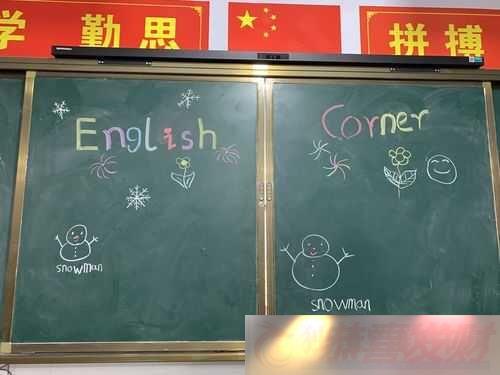 学 勤思
拼搏
English Corner
snowman
snowman